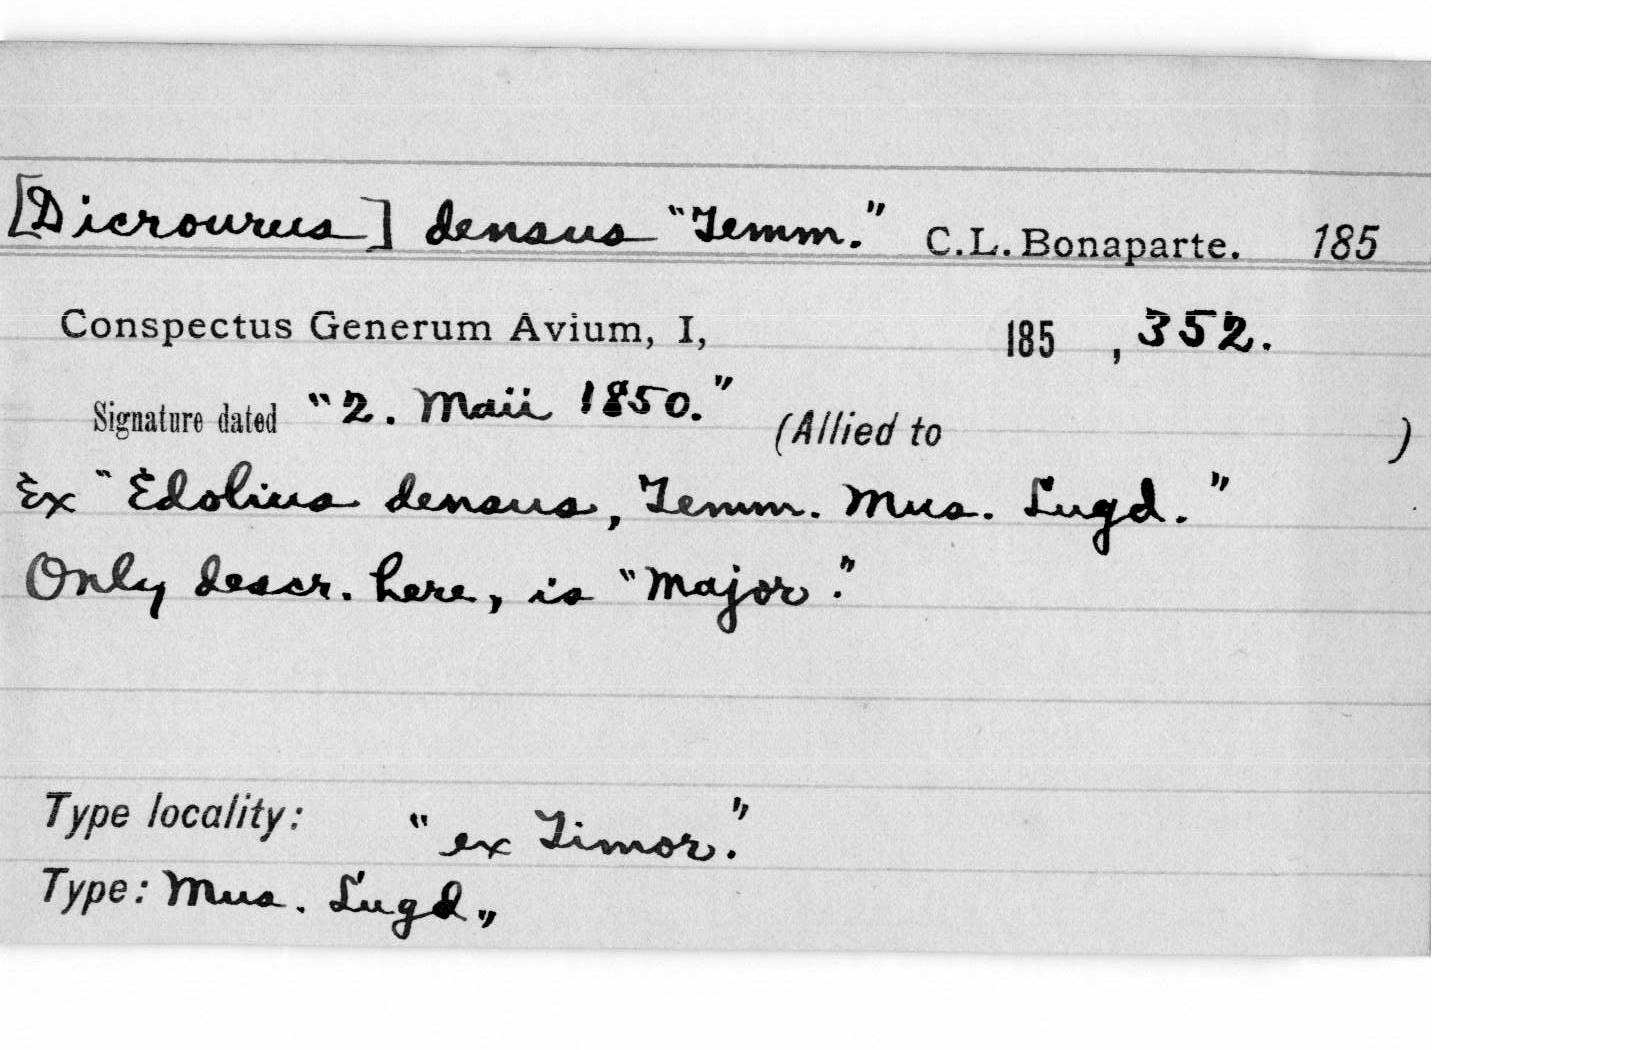 [Dicrourus] densus "Temm." C.L. Bonaparte. 185
Conspectus Generum Avium, I, 185 , 352.
Signature dated "2. Maii 1850." (Allied to )
Ex "Edolius densus, Temm. Mus. Lugd."
Only descr. here, is "Major."
Type locality: "ex Timor."
Type: Mus. Lugd."